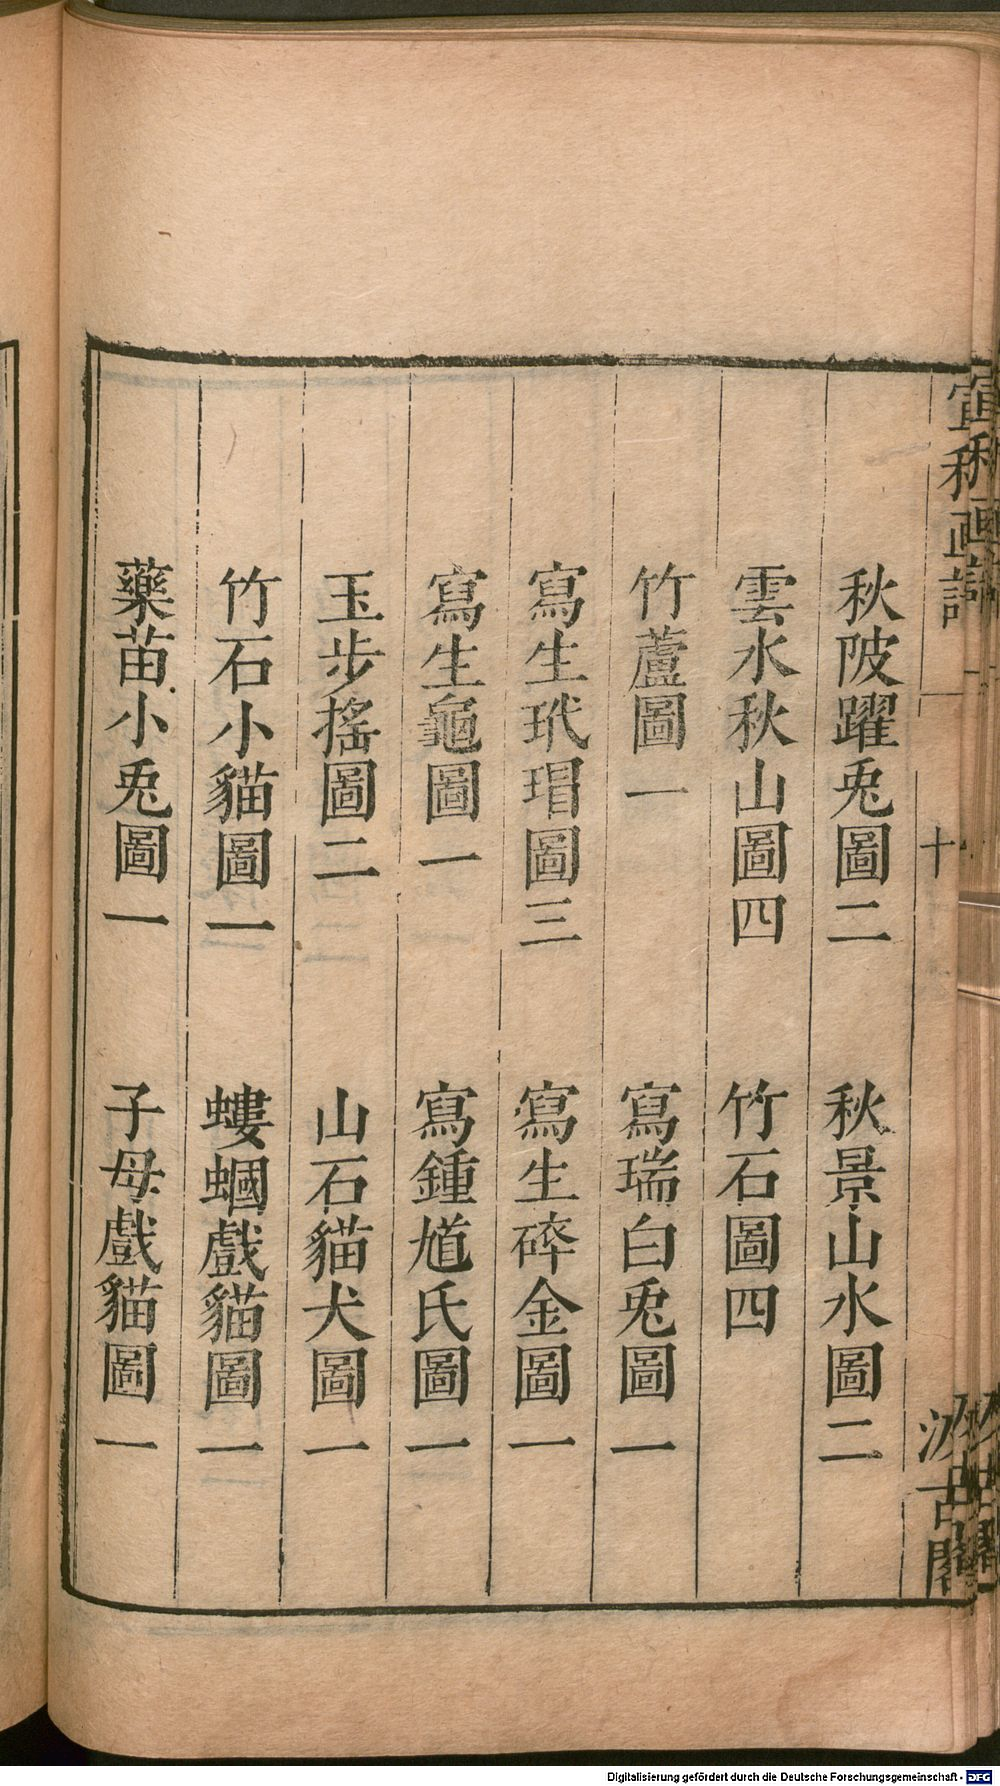 宣和画譜
十
汲古閣
秋陂躍兎圖二　秋景山水圖二
雲水秋山圖四　竹石圖四
竹蘆圖一　寫瑞白兎圖一
寫生玳瑁圖三　寫生碎金圖一
寫生龜圖一　寫鍾馗氏圖一
玉步搖圖二　山石貓犬圖一
竹石小貓圖一　螻蟈戲貓圖一
藥苗小兎圖一　子母戲貓圖一
Digitalisierung gefördert durch die Deutsche Forschungsgemeinschaft - DFG